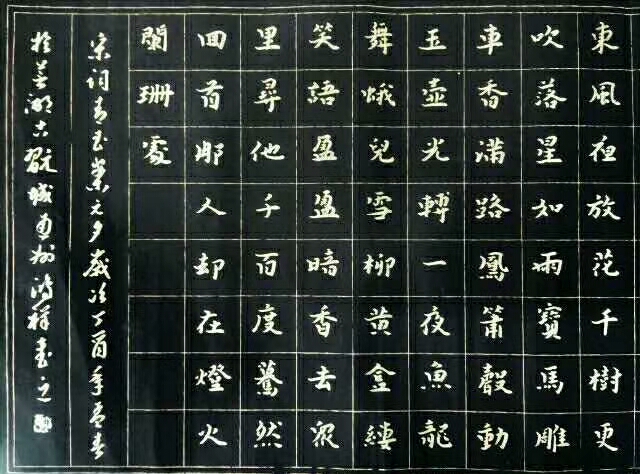 東風夜放花千樹更
吹落星如雨寶馬雕
車香滿路鳳簫聲動
玉壺光轉一夜魚龍
舞蛾兒雪柳黄金縷
笑語盈盈暗香去眾
里尋他千百度驀然
回首那人却在燈火
闌珊處
宋詞青玉案元夕歲次丁酉年春
於蕪湖古城鴻祥書之